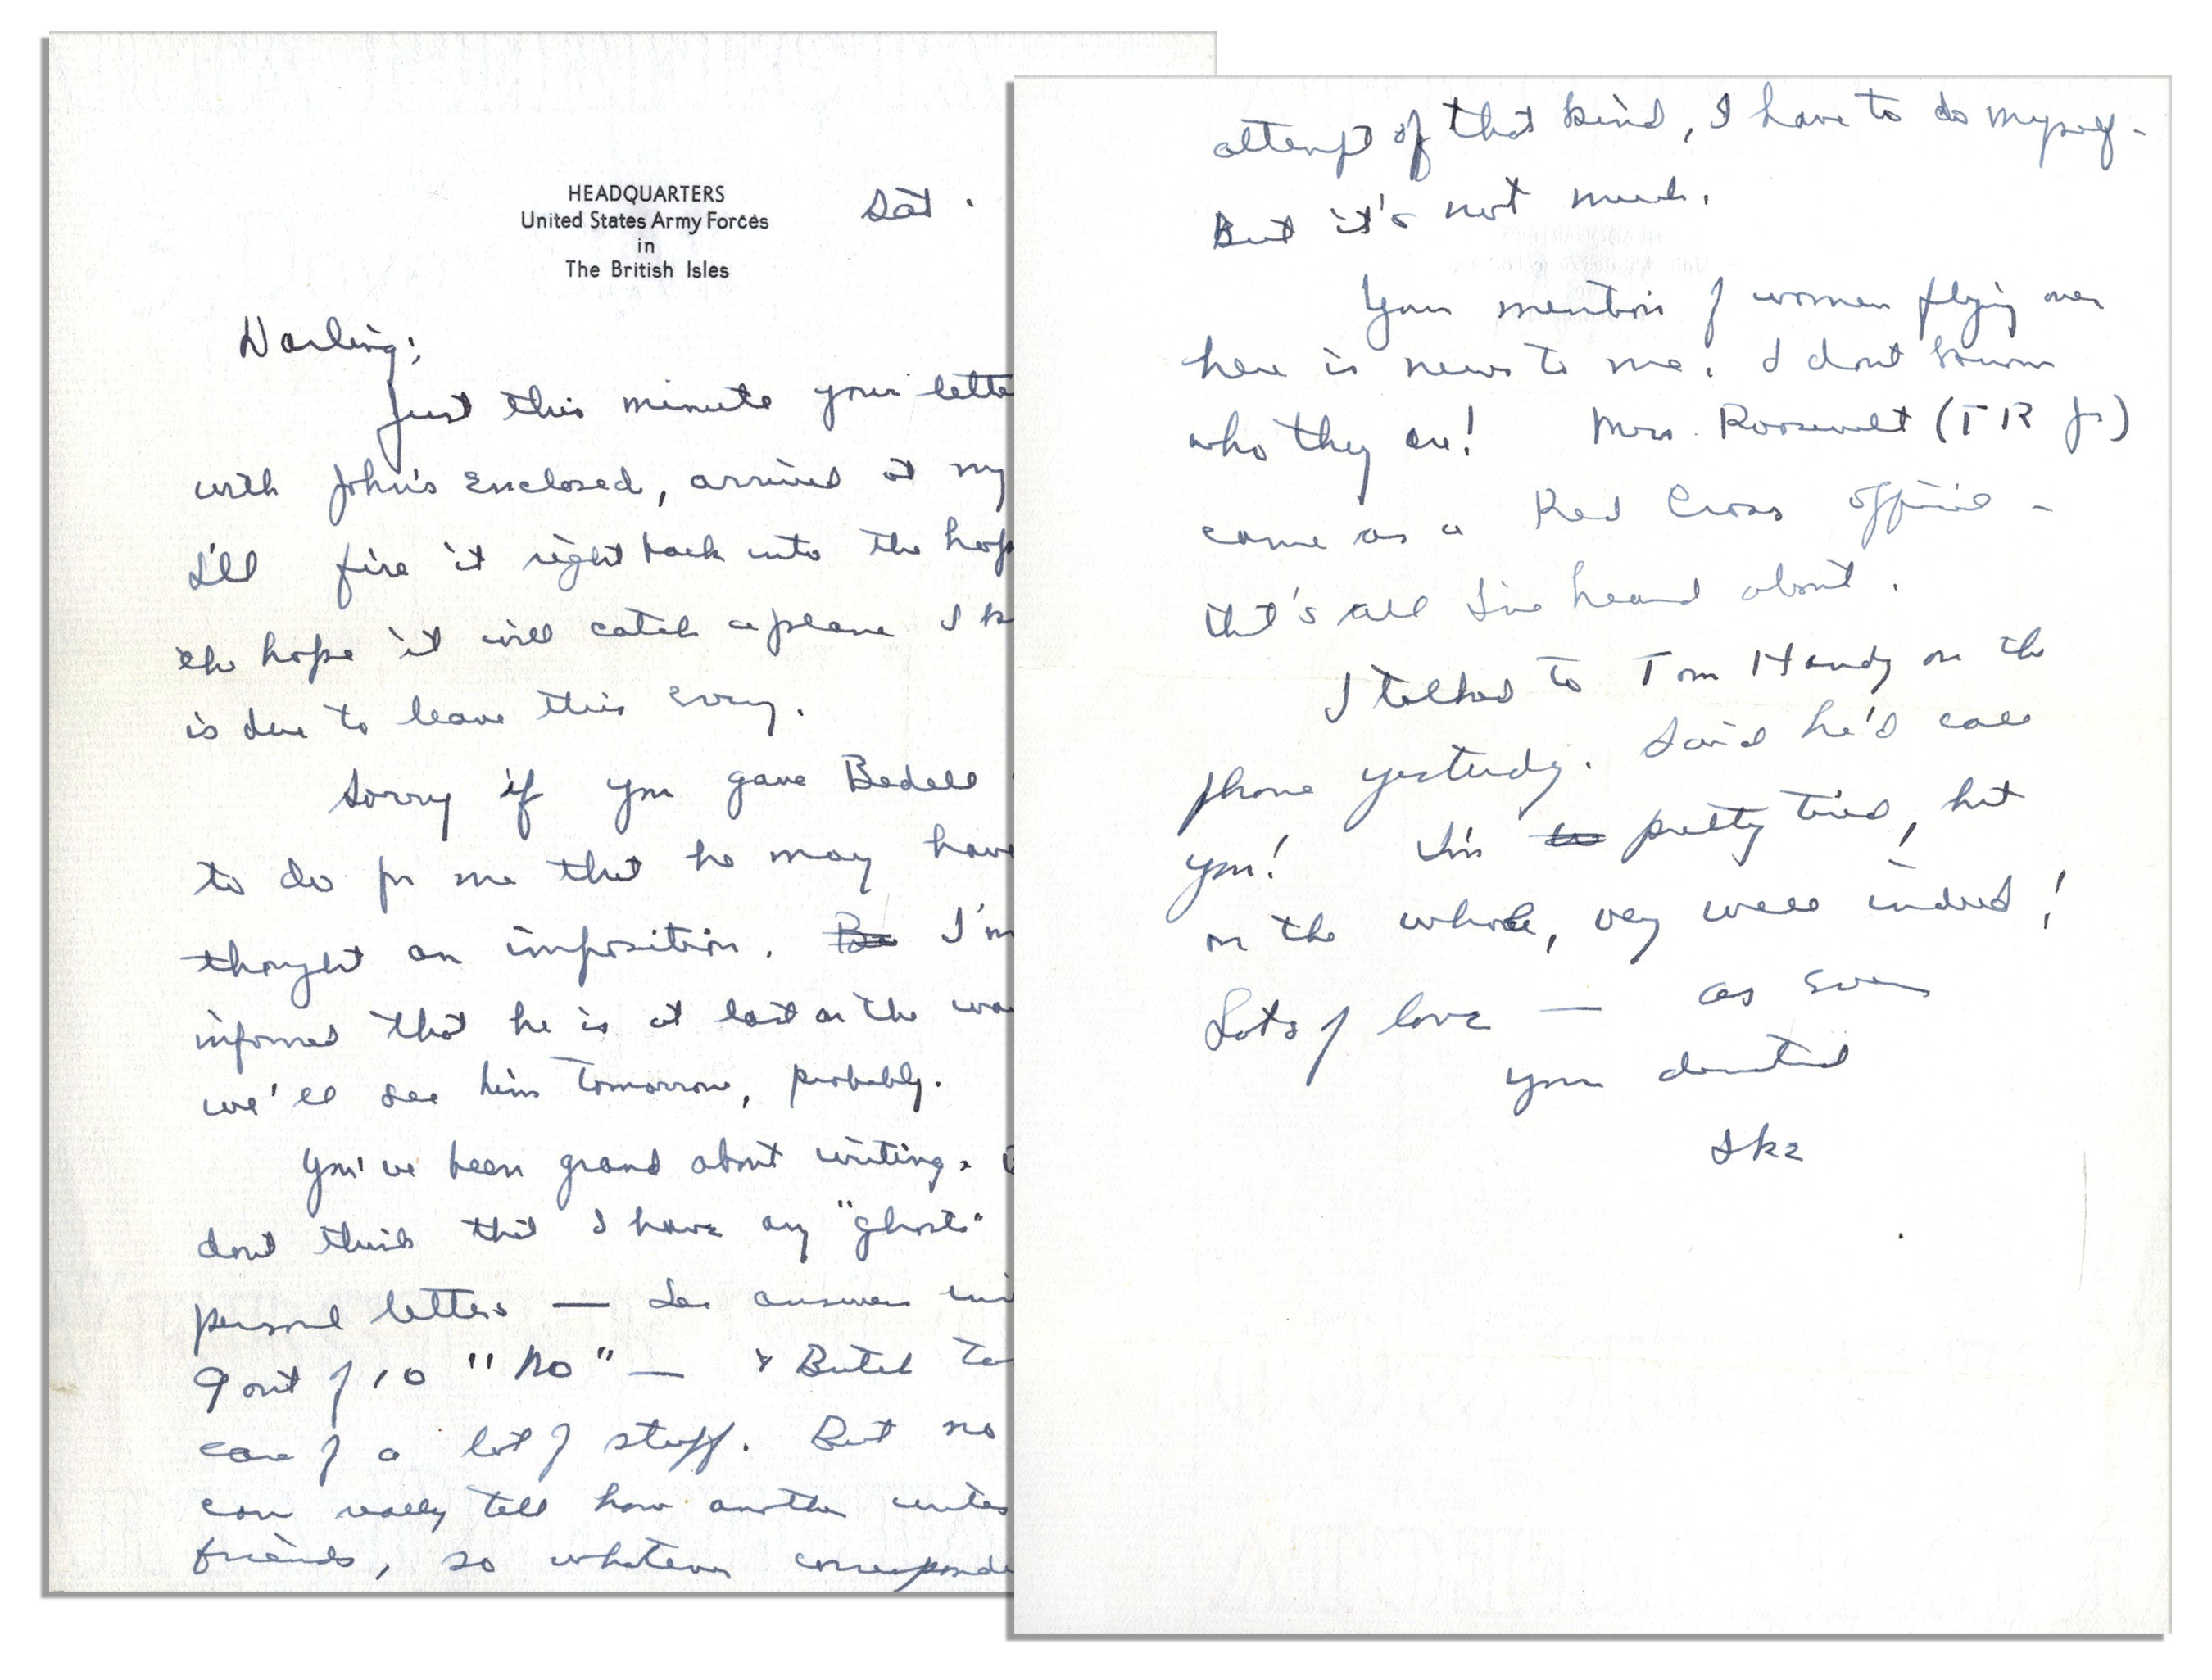 HEADQUARTERS
United States Army Forces
in
The British Isles
Sat.
Darling:
Just this minute your lette
with John's enclosed, arrived at my
I'll fire it right back into the hop
the hope it will catch a plane I k
is due to leave this eveg.
Sorry if you gave Bedell
to do for me that he may have
thought an imposition. Be I'm
informed that he is at last on the wa
we'll see him tomorrow, probably.
You've been grand about writing.
dont think that I have any "ghosts"
personal letters — Lee answers invi
9 out of 10 "No" — & Butch ta
care of a lot of stuff. But no
can really tell how another writes
friends, so whatever corresponde
attempt of that kind, I have to do myself -
But it's not much.
Your mention of women flying over
here is news to me. I dont know
who they are! Mrs. Roosevelt (TR Jr)
came as a Red Cross official -
that's all I've heard about.
I talked to Tom Handy on the
phone yesterday. Said he'd call
you! I'm to pretty tired, but
on the whole, very well indeed!
Lots of love — as ever
your devoted
Ike